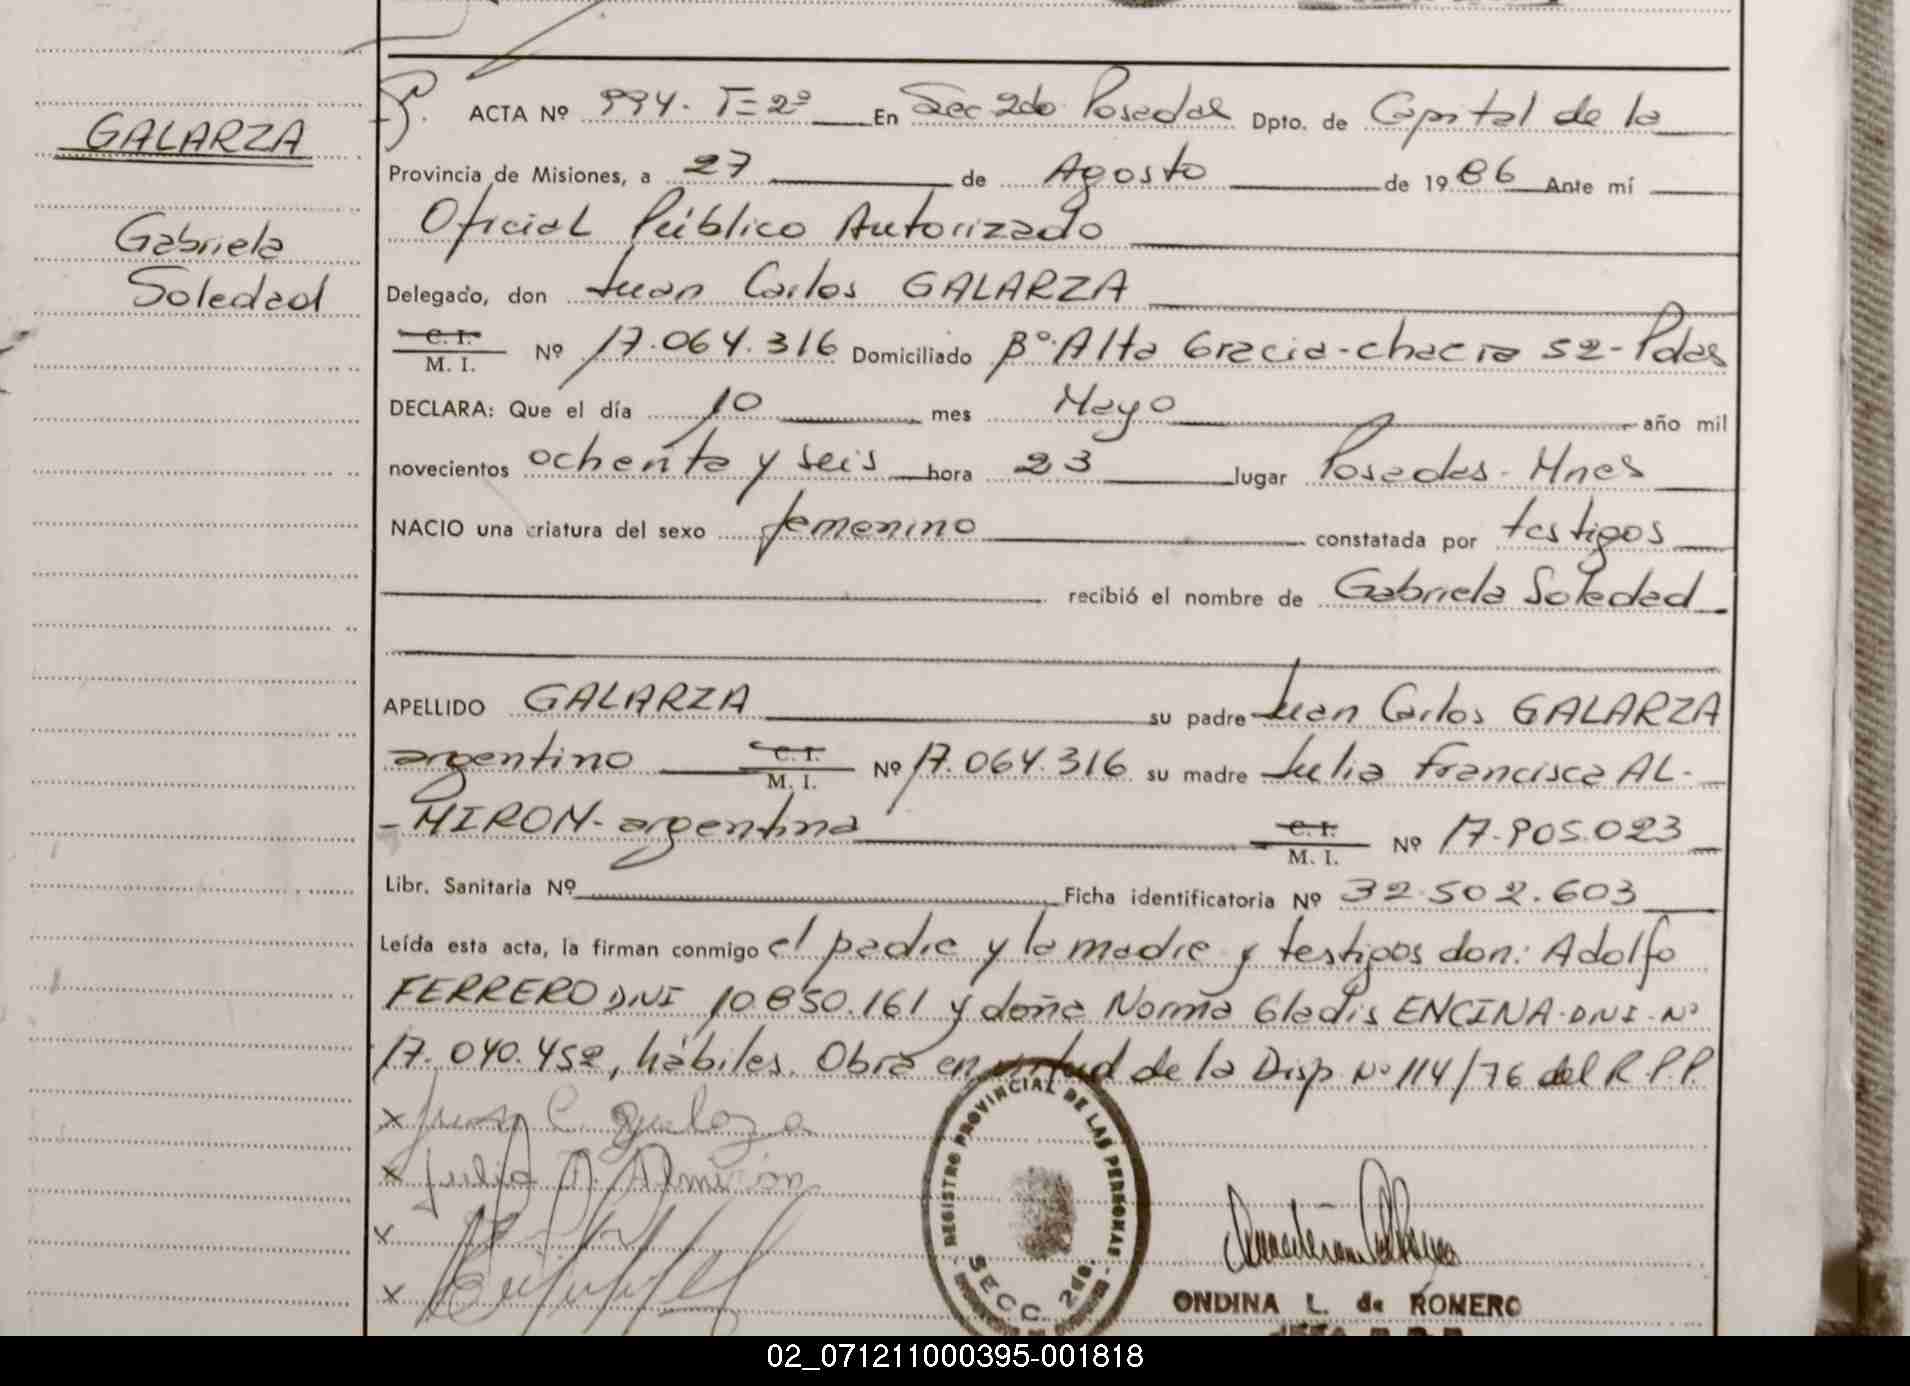 GALARZA
Gabriela
Soledad
ACTA Nº 994. T=2º En Sec 2do Posadas Dpto. de Capital de la
Provincia de Misiones, a 27 de Agosto de 1986 Ante mí
Oficial Público Autorizado
Delegado, don Juan Carlos GALARZA
C. I.
M. I. Nº 17.064.316 Domiciliado Bº Alta Gracia-chacra 52-Pdas
DECLARA: Que el día 10 mes Mayo año mil
novecientos ochenta y seis hora 23 lugar Posadas-Mnes
NACIO una criatura del sexo femenino constatada por testigos
recibió el nombre de Gabriela Soledad
APELLIDO GALARZA su padre Juan Carlos GALARZA
argentino C. I. M. I. Nº 17.064.316 su madre Julia Francisca AL-
-MIRON-argentina C. I. M. I. Nº 17.905.023
Libr. Sanitaria Nº Ficha identificatoria Nº 32.502.603
Leída esta acta, la firman conmigo el padre y la madre y testigos don: Adolfo
FERRERO DNI 10.850.161 y doña Norma Gladis ENCINA-DNI-Nº
17.040.452, hábiles. Obra en virtud de la Disp. Nº 114/76 del R.P.P.
x Juan C. Galarza
x Julia F. Almirón
x
x
REGISTRO PROVINCIAL DE LAS PERSONAS
SECC. 2da.
ONDINA L. de ROMERO
02_071211000395-001818